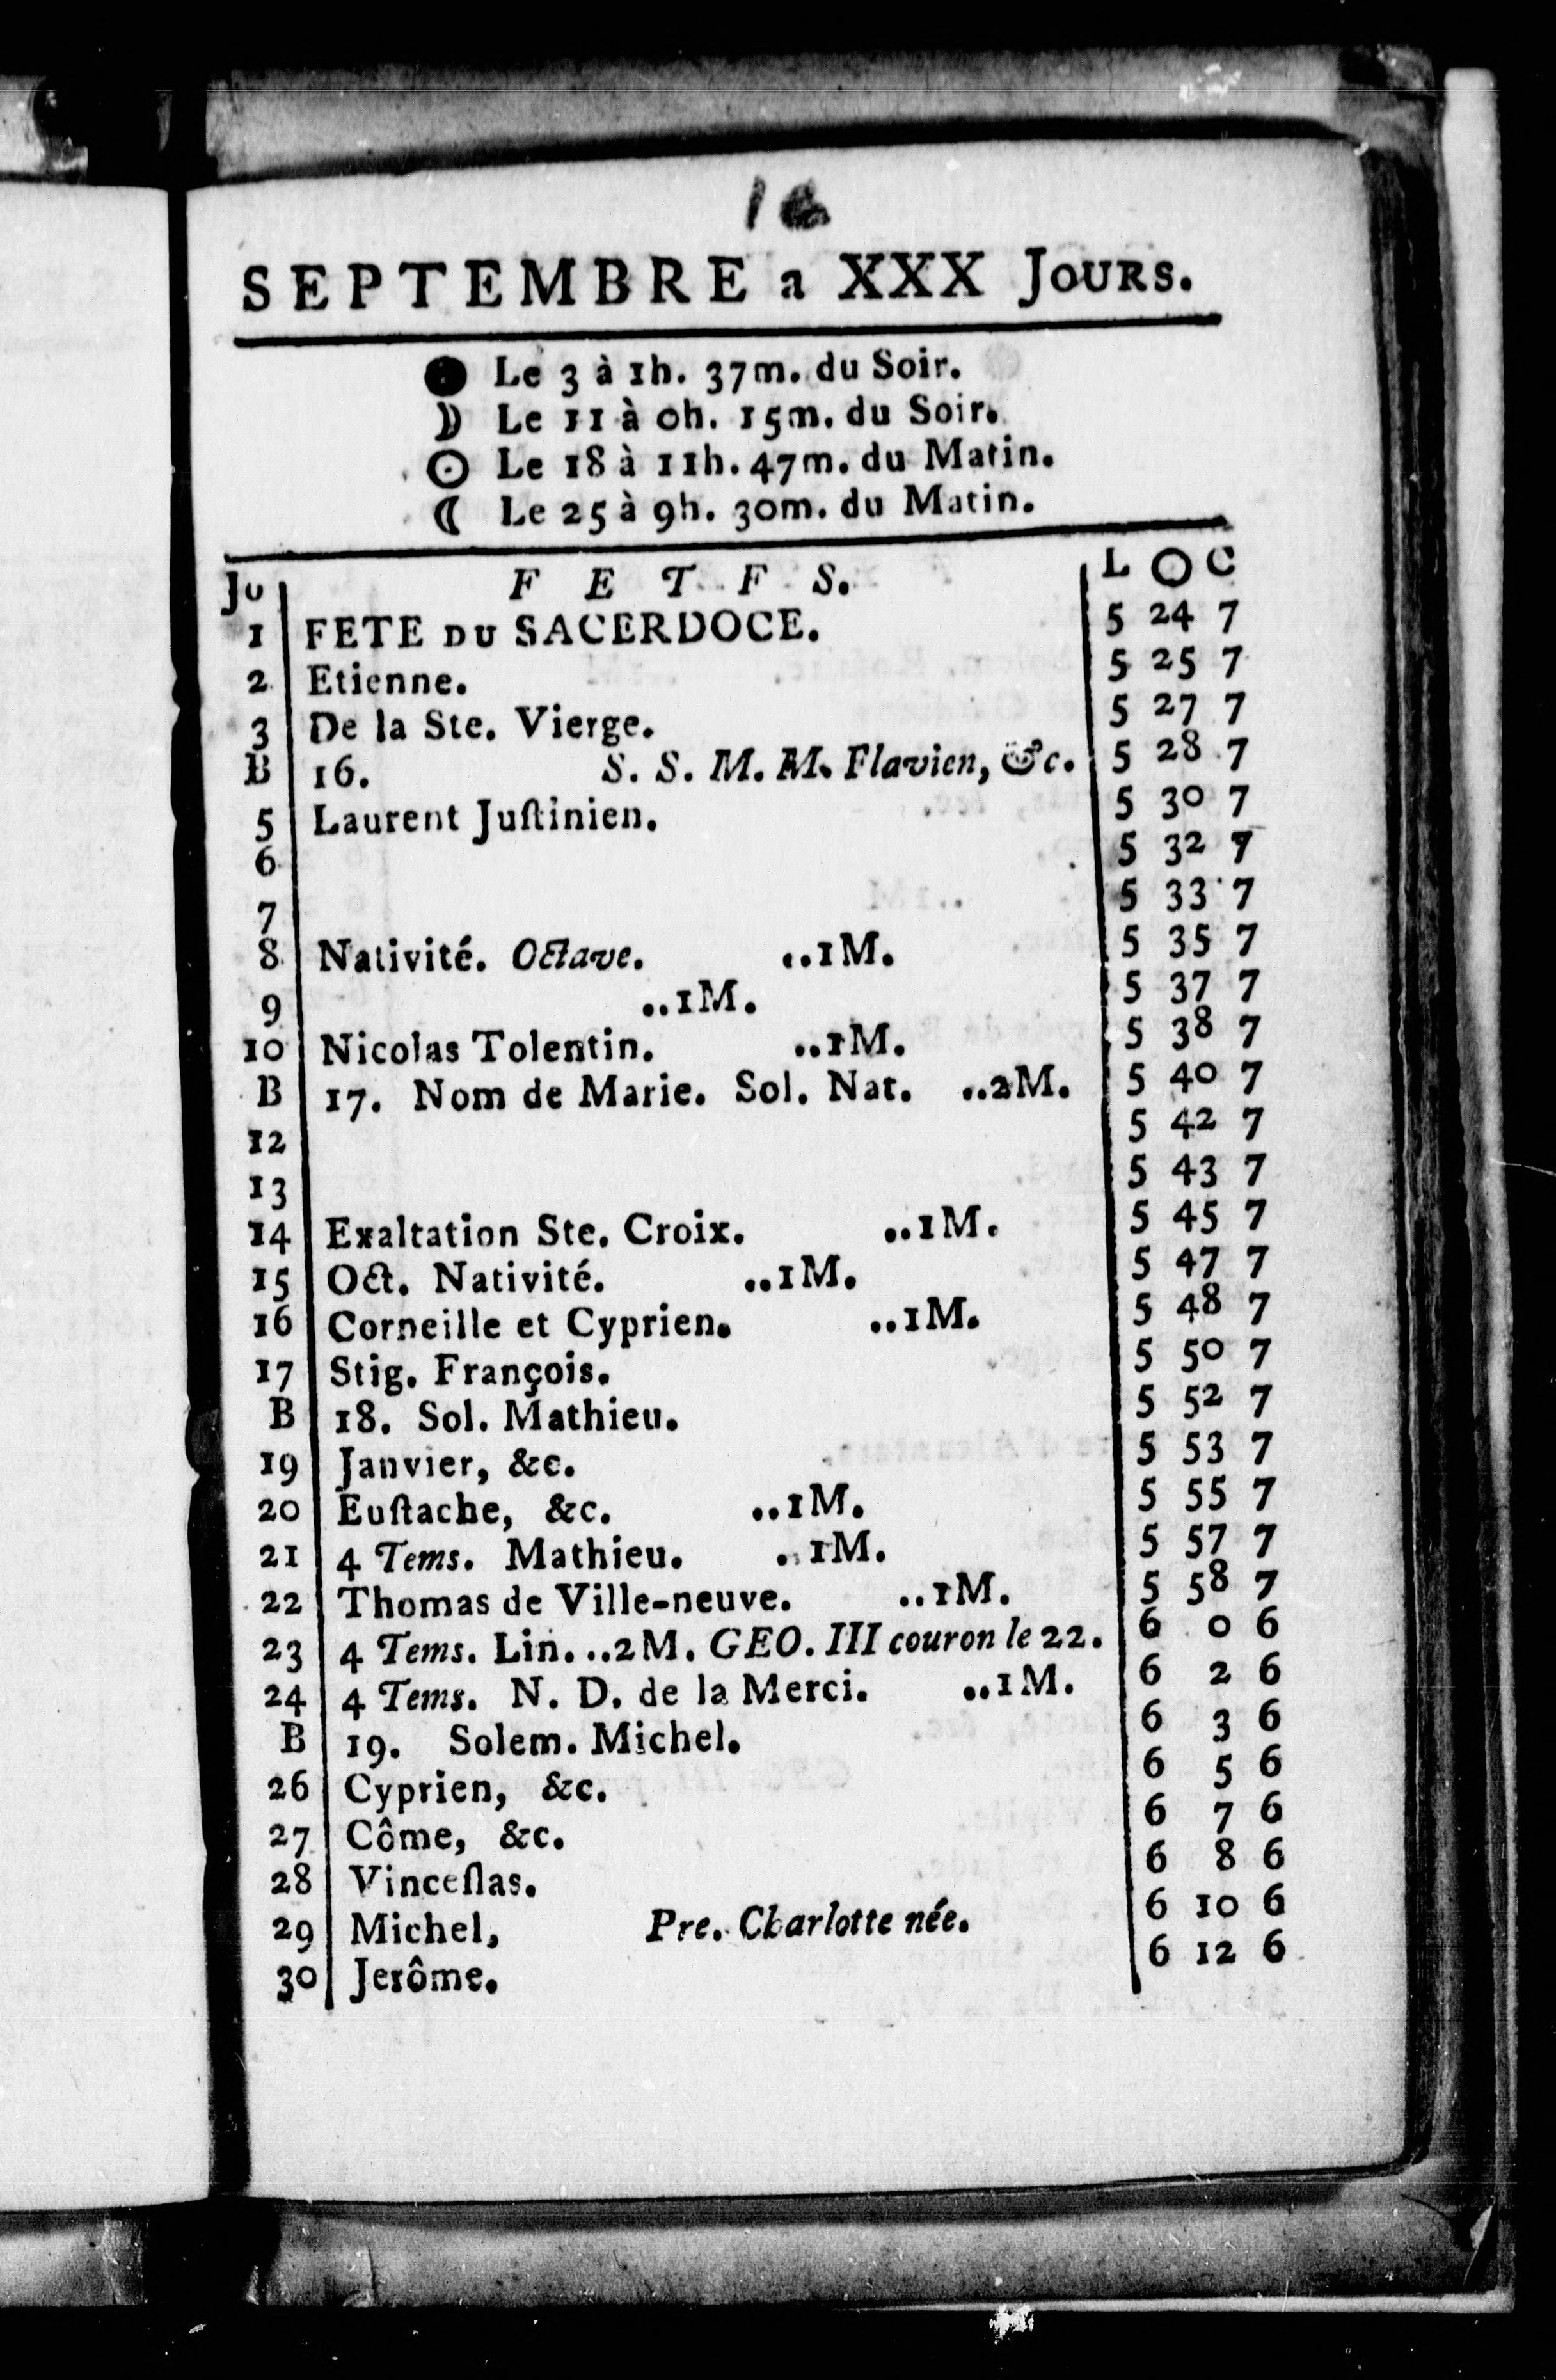 SEPTEMBRE a XXX JOURS.
● Le 3 à 1h. 37m. du Soir.
☽ Le 11 à 0h. 15m. du Soir.
☉ Le 18 à 11h. 47m. du Matin.
☾ Le 25 à 9h. 30m. du Matin.
Jo F E T F S. L O C
1 FETE DU SACERDOCE. 5 24 7
2 Etienne. 5 25 7
3 De la Ste. Vierge. 5 27 7
B 16. S. S. M. M. Flavien, &c. 5 28 7
5 Laurent Juſtinien. 5 30 7
6 5 32 7
7 5 33 7
8 Nativité. Octave. ..1M. 5 35 7
9 ..1M. 5 37 7
10 Nicolas Tolentin. ..1M. 5 38 7
B 17. Nom de Marie. Sol. Nat. ..2M. 5 40 7
12 5 42 7
13 5 43 7
14 Exaltation Ste. Croix. ..1M. 5 45 7
15 Oct. Nativité. ..1M. 5 47 7
16 Corneille et Cyprien. ..1M. 5 48 7
17 Stig. François. 5 50 7
B 18. Sol. Mathieu. 5 52 7
19 Janvier, &c. 5 53 7
20 Euſtache, &c. ..1M. 5 55 7
21 4 Tems. Mathieu. ..1M. 5 57 7
22 Thomas de Ville-neuve. ..1M. 5 58 7
23 4 Tems. Lin. ..2M. GEO. III couron le 22. 6 0 6
24 4 Tems. N. D. de la Merci. ..1M. 6 2 6
B 19. Solem. Michel. 6 3 6
26 Cyprien, &c. 6 5 6
27 Côme, &c. 6 7 6
28 Vinceſlas. 6 8 6
29 Michel, Pre. Charlotte née. 6 10 6
30 Jerôme. 6 12 6